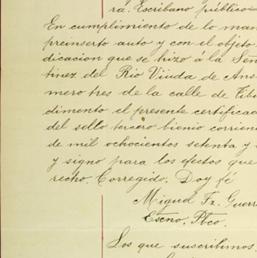 ra. Escribano público
En cumplimiento de lo man
preinserto auto y con el objeto
dicacion que se hizo á la Señ
tinez del Rio Viuda de Ans
mero tres de la calle de Tib
dimento el presente certificad
del sello tercero bienio corrien
de mil ochocientos setenta y
y signo para los efectos que
recho. Corregido. Doy fé
Miguel Fz. Guerr
Escno. Pco.
Los que suscribimos,